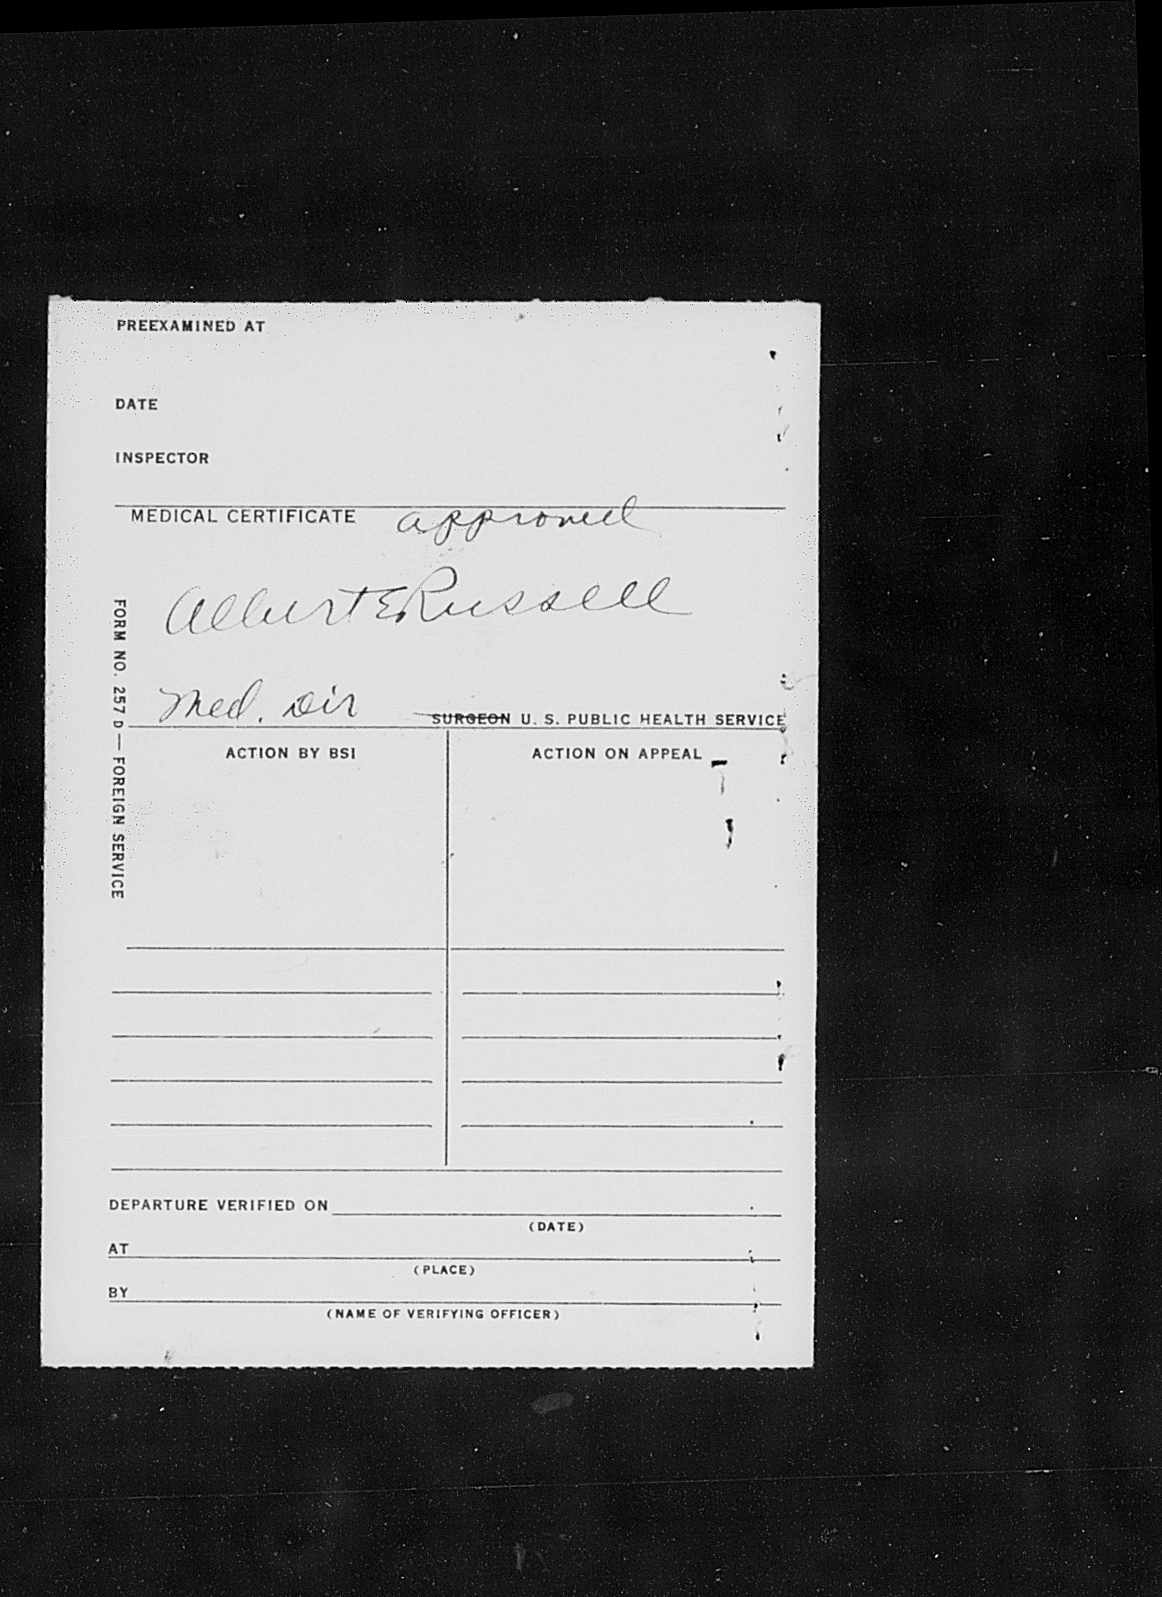 PREEXAMINED AT
DATE
INSPECTOR
MEDICAL CERTIFICATE approved
Albert E Russell
Med. Dir SURGEON U. S. PUBLIC HEALTH SERVICE
FORM NO. 257 D — FOREIGN SERVICE
ACTION BY BSI ACTION ON APPEAL
DEPARTURE VERIFIED ON
(DATE)
AT
(PLACE)
BY
(NAME OF VERIFYING OFFICER)